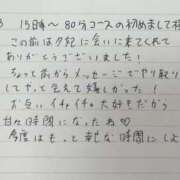 15日〜80分コースの初めまして様
この前は夕紀に会いに来てくれて
ありがとうございました!
ちょっと前からメッセージでやり取り
してやっと会えて嬉しかった!
お互いイチャイチャ大好きだから
甘々時間になったね♡
今度はもっと
時間にしよ